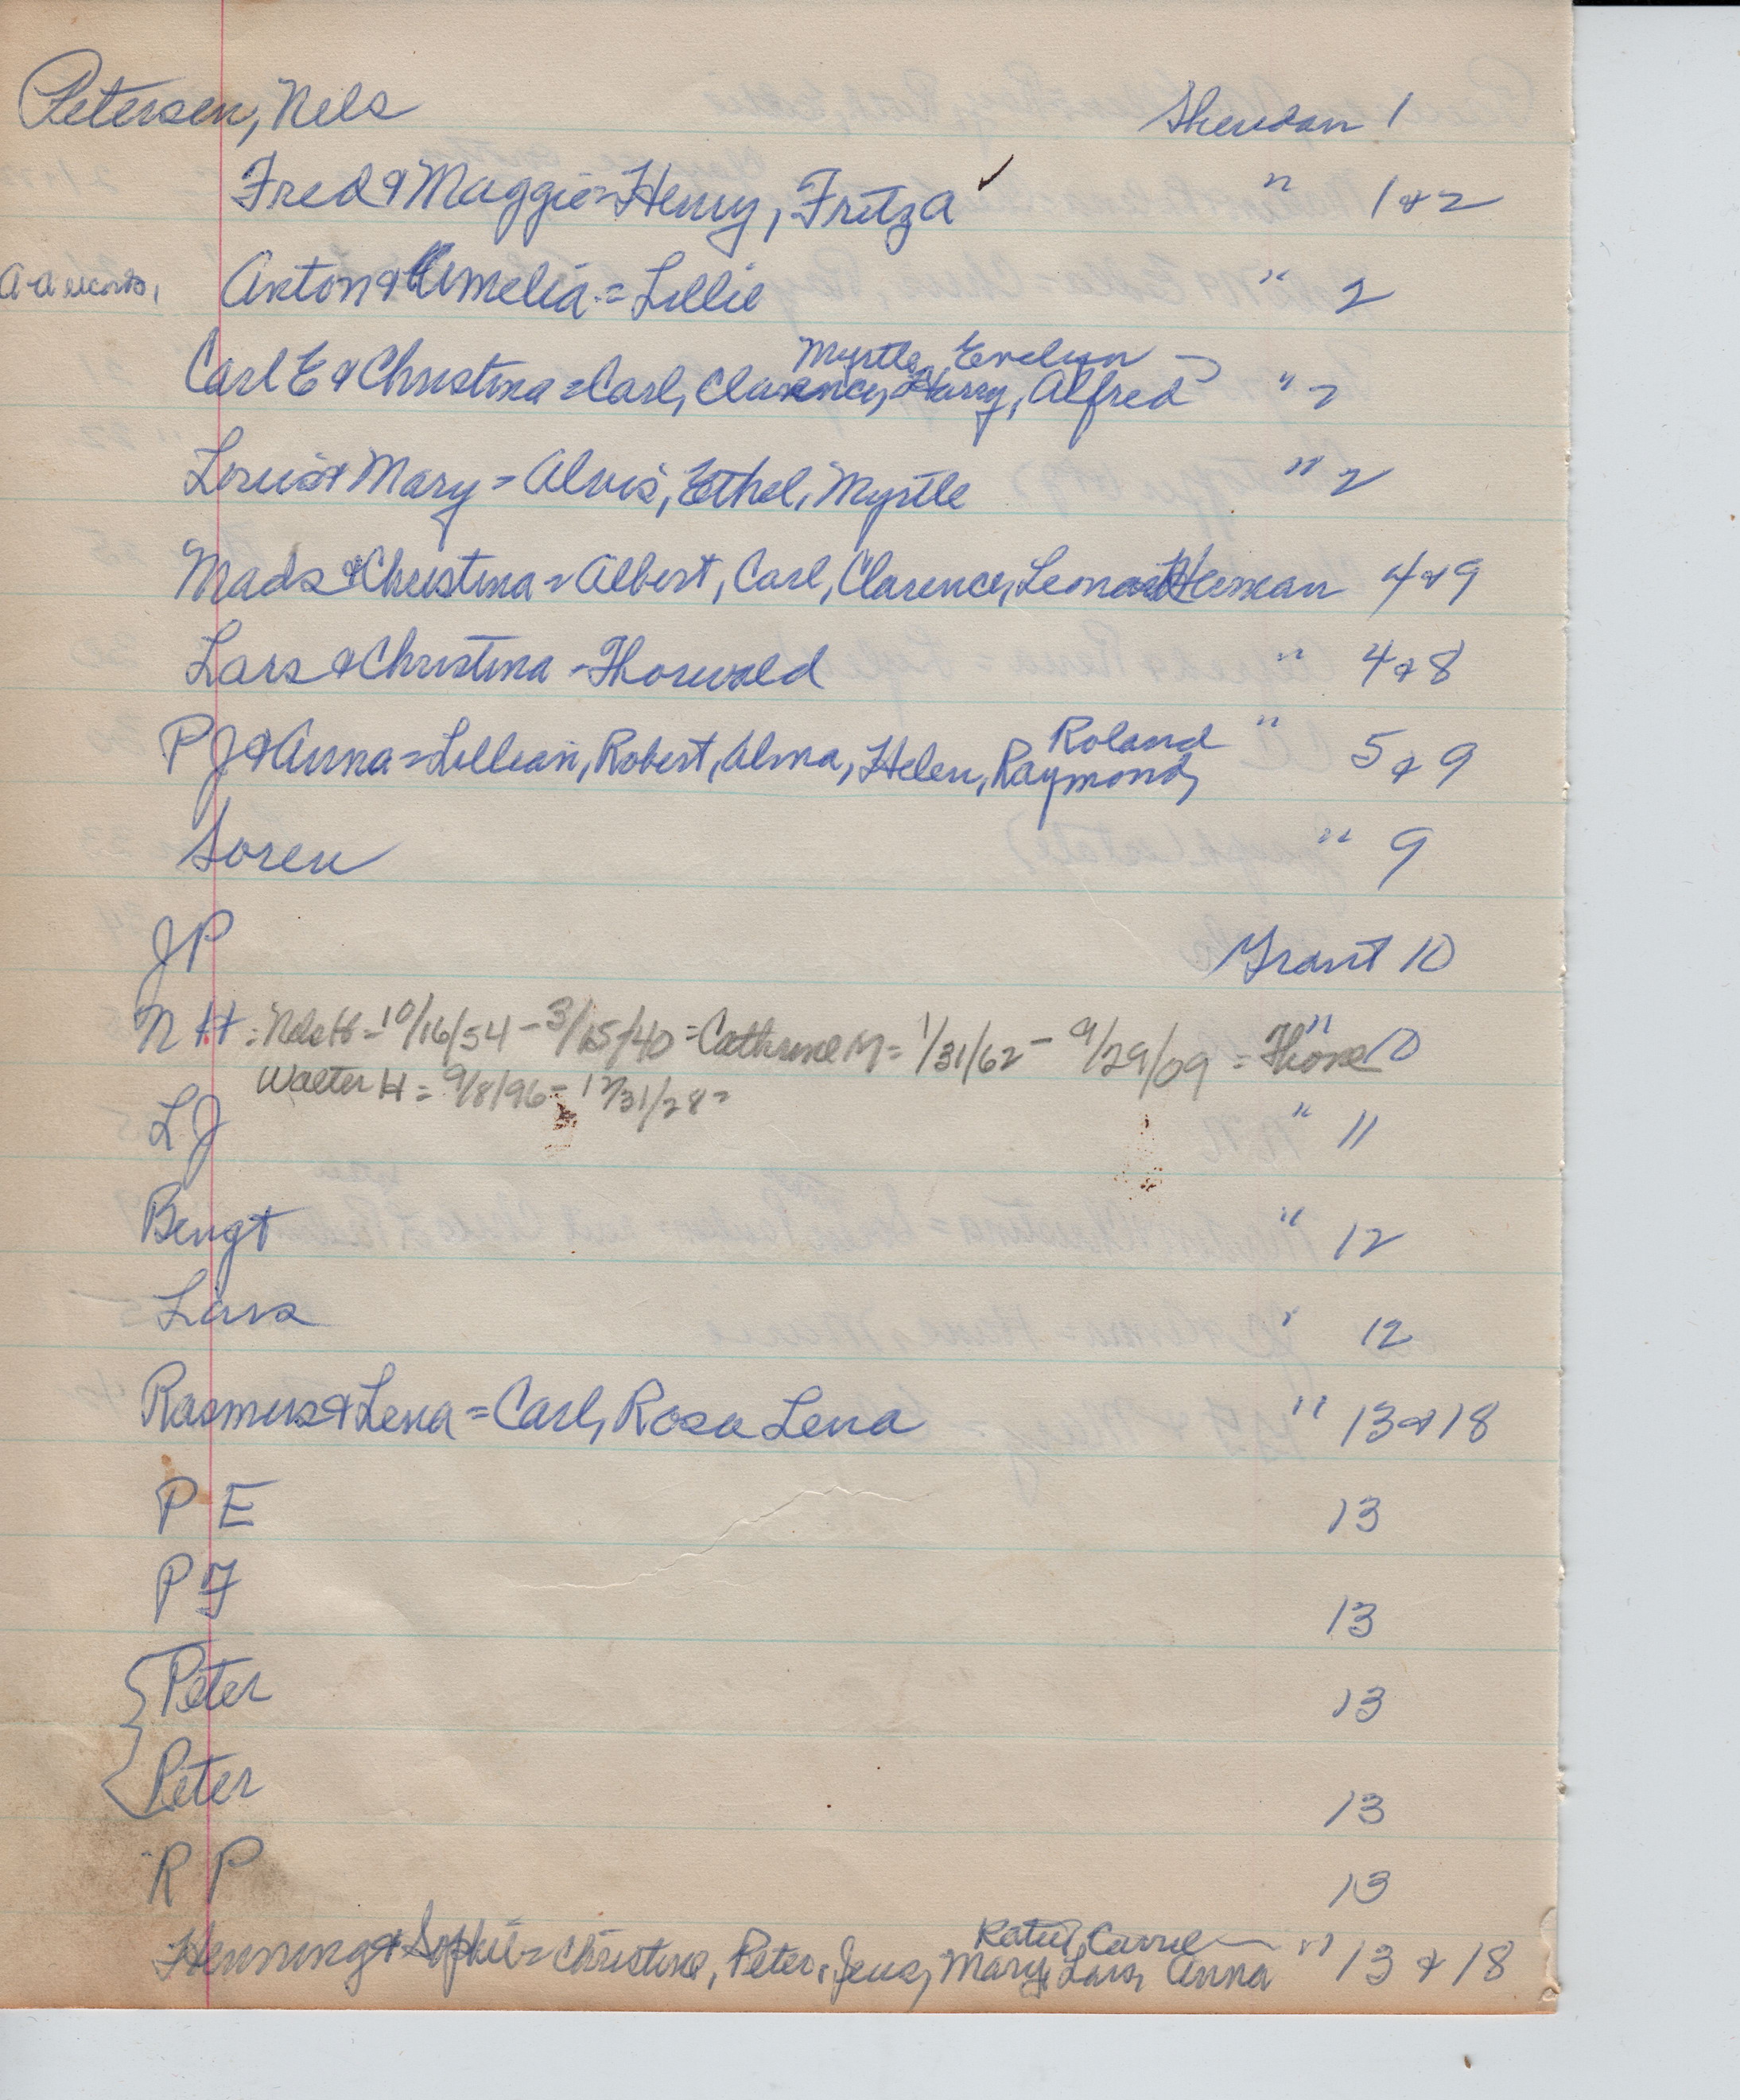 Petersen, Nels Sheridan 1
Fred & Maggie = Henry, Fritza ✓ " 1 & 2
Anton & Amelia = Lillie " 2
Myrtle, Evelyn
Carl E & Christina = Carl, Clarence, Harry, Alfred " 2
Louis & Mary = Alvis, Ethel, Myrtle " 2
Mads & Christina = Albert, Carl, Clarence, Leonard Herman 4 & 9
Lars & Christina - Thorwald " 4 & 8
Roland
P J & Anna = Lillian, Robert, Alma, Helen, Raymond, " 5 & 9
Soren " 9
J P Grant 10
N H = Nels H - 10/16/54 - 3/15/40 = Cathrine M = 1/31/62 - 9/29/09 = "
Walter H = 9/8/96 - 12/31/28 =
L J " 11
Bengt " 12
Lars " 12
Rasmus & Lena = Carl, Rosa Lena " 13 & 18
P E 13
P F 13
Peter 13
Peter 13
R P 13
Katie, Carrie
Henning & Sophie = Christine, Peter, Jens, Mary, Lars, Anna " 13 & 18